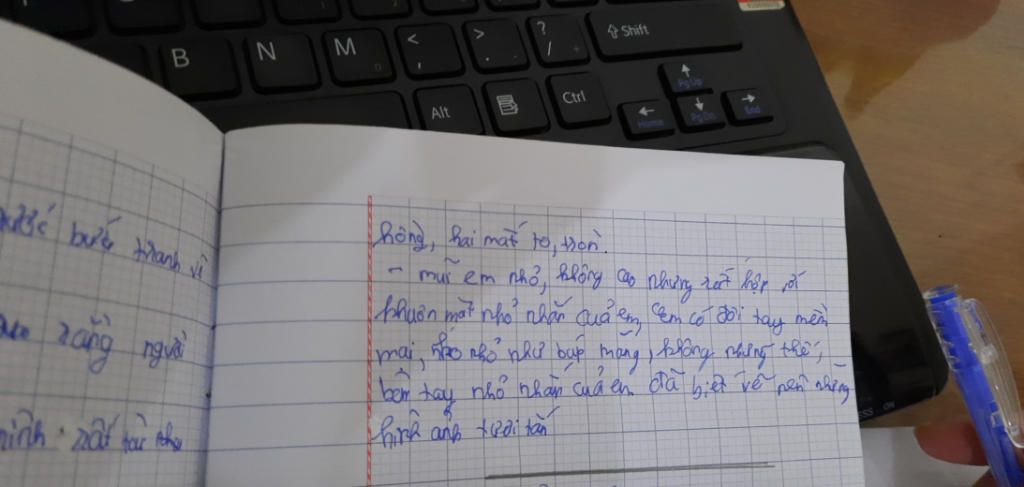 B N M < , > . ? / ⇧ Shift
Alt Ctrl Pg Up
Home Pg Dn End
bức tranh vẽ
rằng người
mình rất
hồng, hai mắt to, tròn.
- mũi em nhỏ, không cao nhưng rất hợp với
khuôn mặt nhỏ nhắn của em, em có đôi tay mềm
mại, nhỏ như búp măng, không những thế,
tay nhỏ nhắn của em đã biết vẽ nên những
hình ảnh tươi tắn
ON